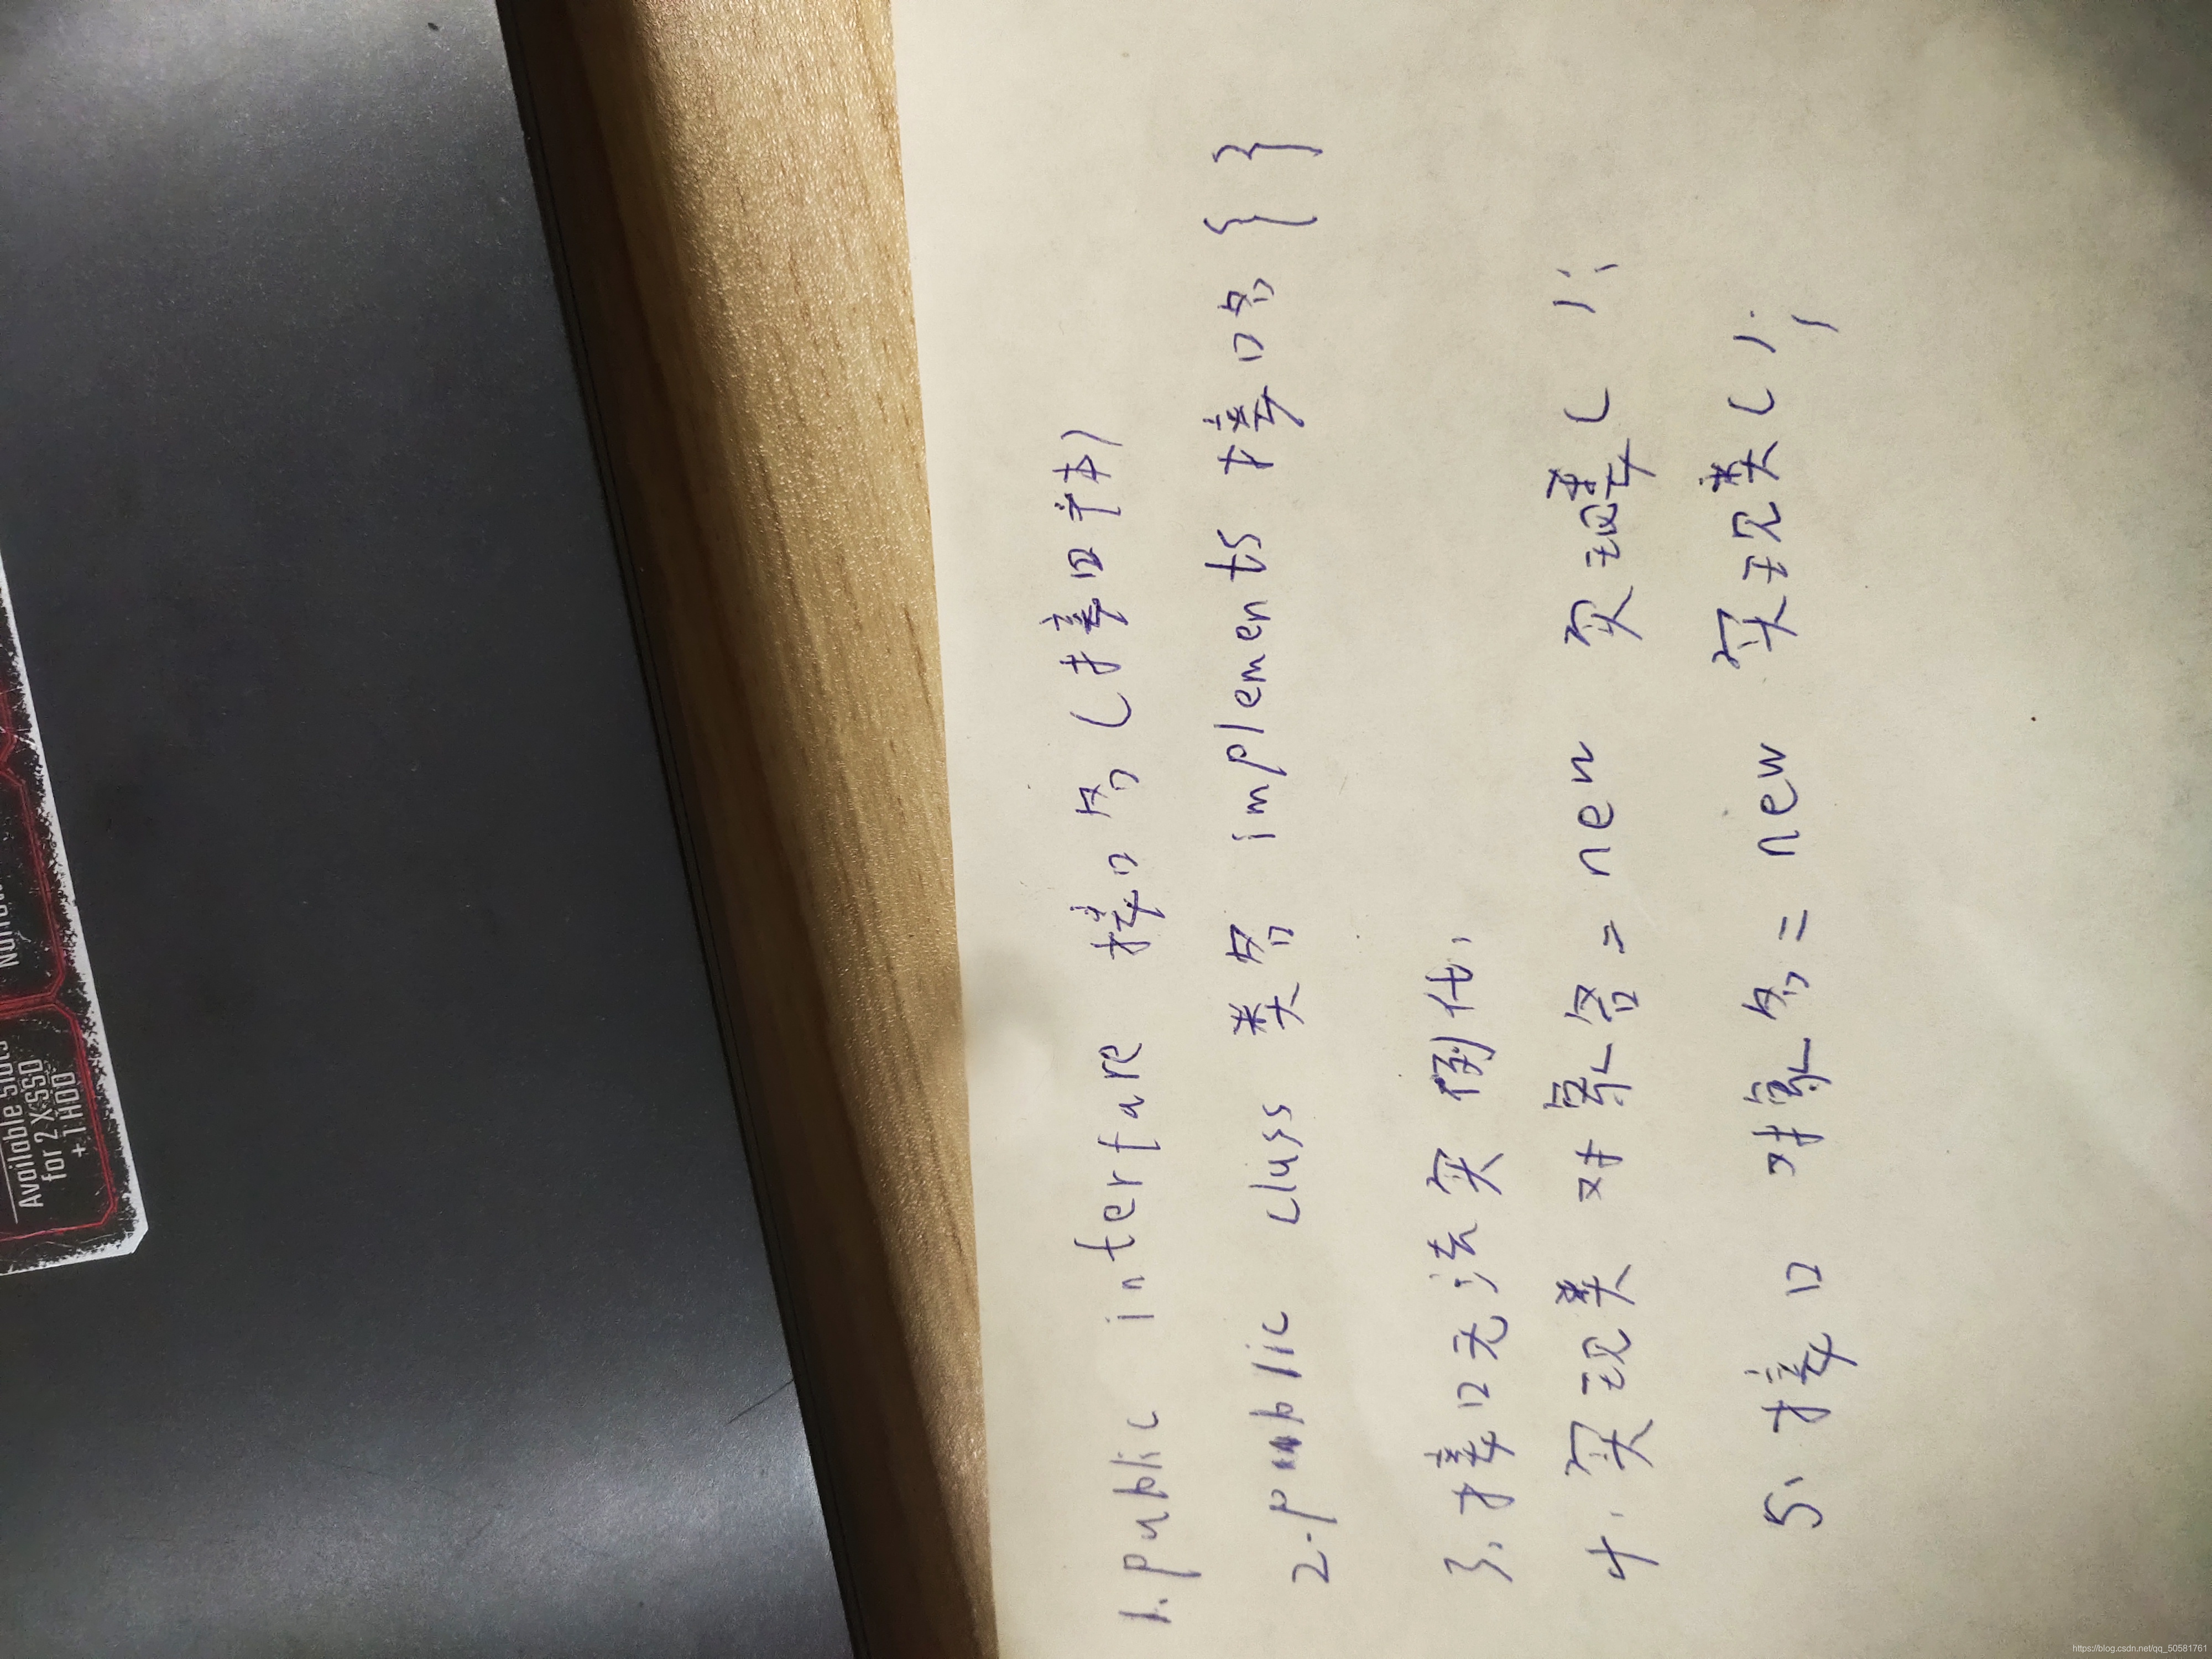 1.public interfare 接口名(接口字体)
2.public class 类名 implements 接口名{ }
3、接口无法实例化.
4. 实现类 对象名 = new 实现类( );
5、接口 对象名 = new 实现类( );
Available Slots
for 2 X SSD
+ 1 HDD
https://blog.csdn.net/qq_50581761